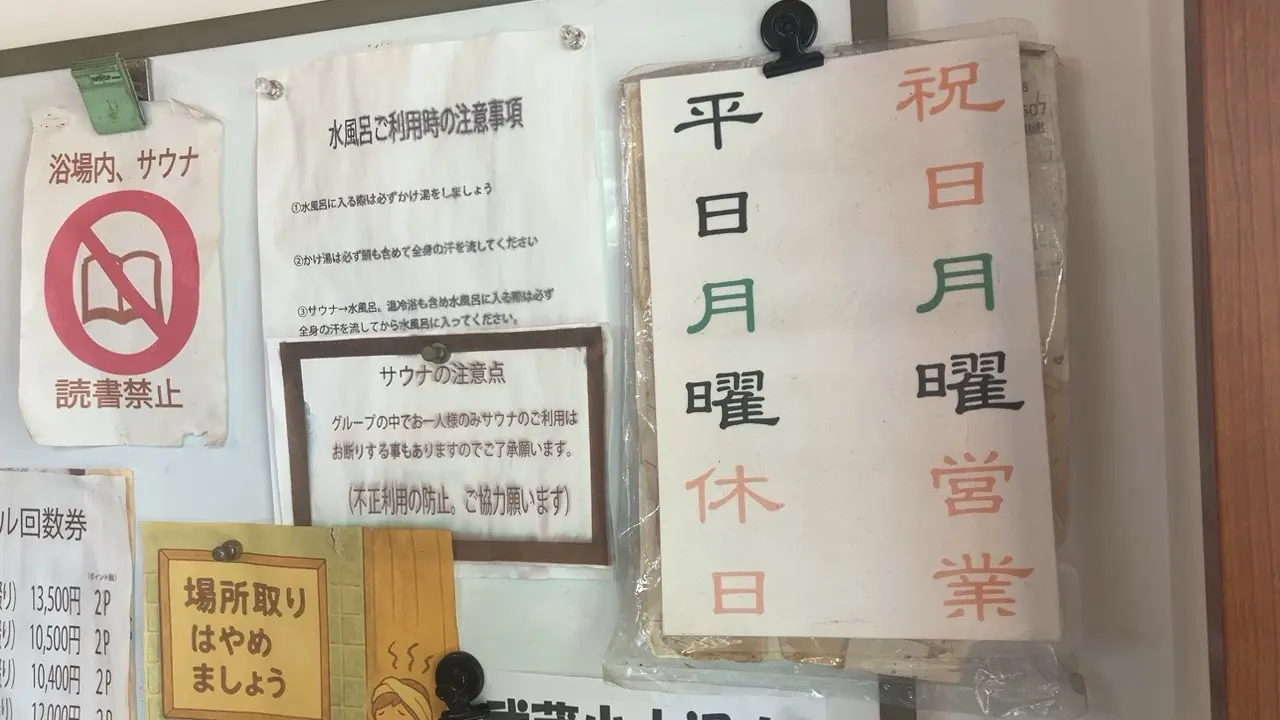 浴場内、サウナ
読書禁止
水風呂ご利用時の注意事項
①水風呂に入る際は必ずかけ湯をしましょう
②かけ湯は必ず頭も含めて全身の汗を流してください
③サウナ→水風呂。温冷浴も含め水風呂に入る際は必ず
全身の汗を流してから水風呂に入ってください。
サウナの注意点
グループの中でお一人様のみサウナのご利用は
お断りする事もありますのでご了承願います。
(不正利用の防止。ご協力願います)
祝日月曜営業
平日月曜休日
507
ル回数券
(ポイント数)
13,500円 2P
10,500円 2P
10,400円 2P
12,000円 2P
場所取り
はやめ
ましょう